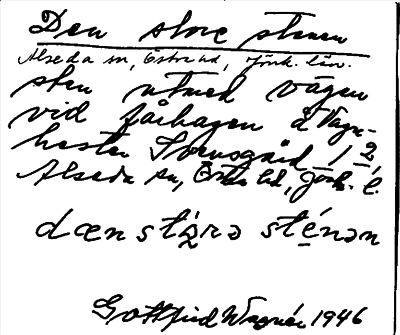 Den store stenen
Alseda sn, Östra hd, Jönk. län.
sten utmed vägen
vid fårhagen å Vagn-
hester Svensgård 1 2,
Alseda sn, Östra hd, Jönk. l.
dæn stọ́rə sténən
Gottfrid Wagnér 1946